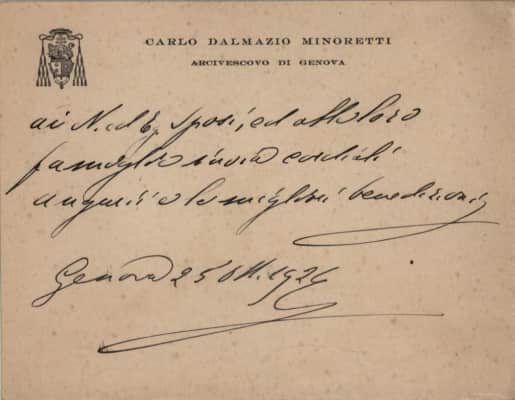 CARLO DALMAZIO MINORETTI
ARCIVESCOVO DI GENOVA
ai N. ed E. sposi, ed alle loro
famiglie invia cordiali
auguri e le migliori benedizioni
Genova 25 Ott. 1926